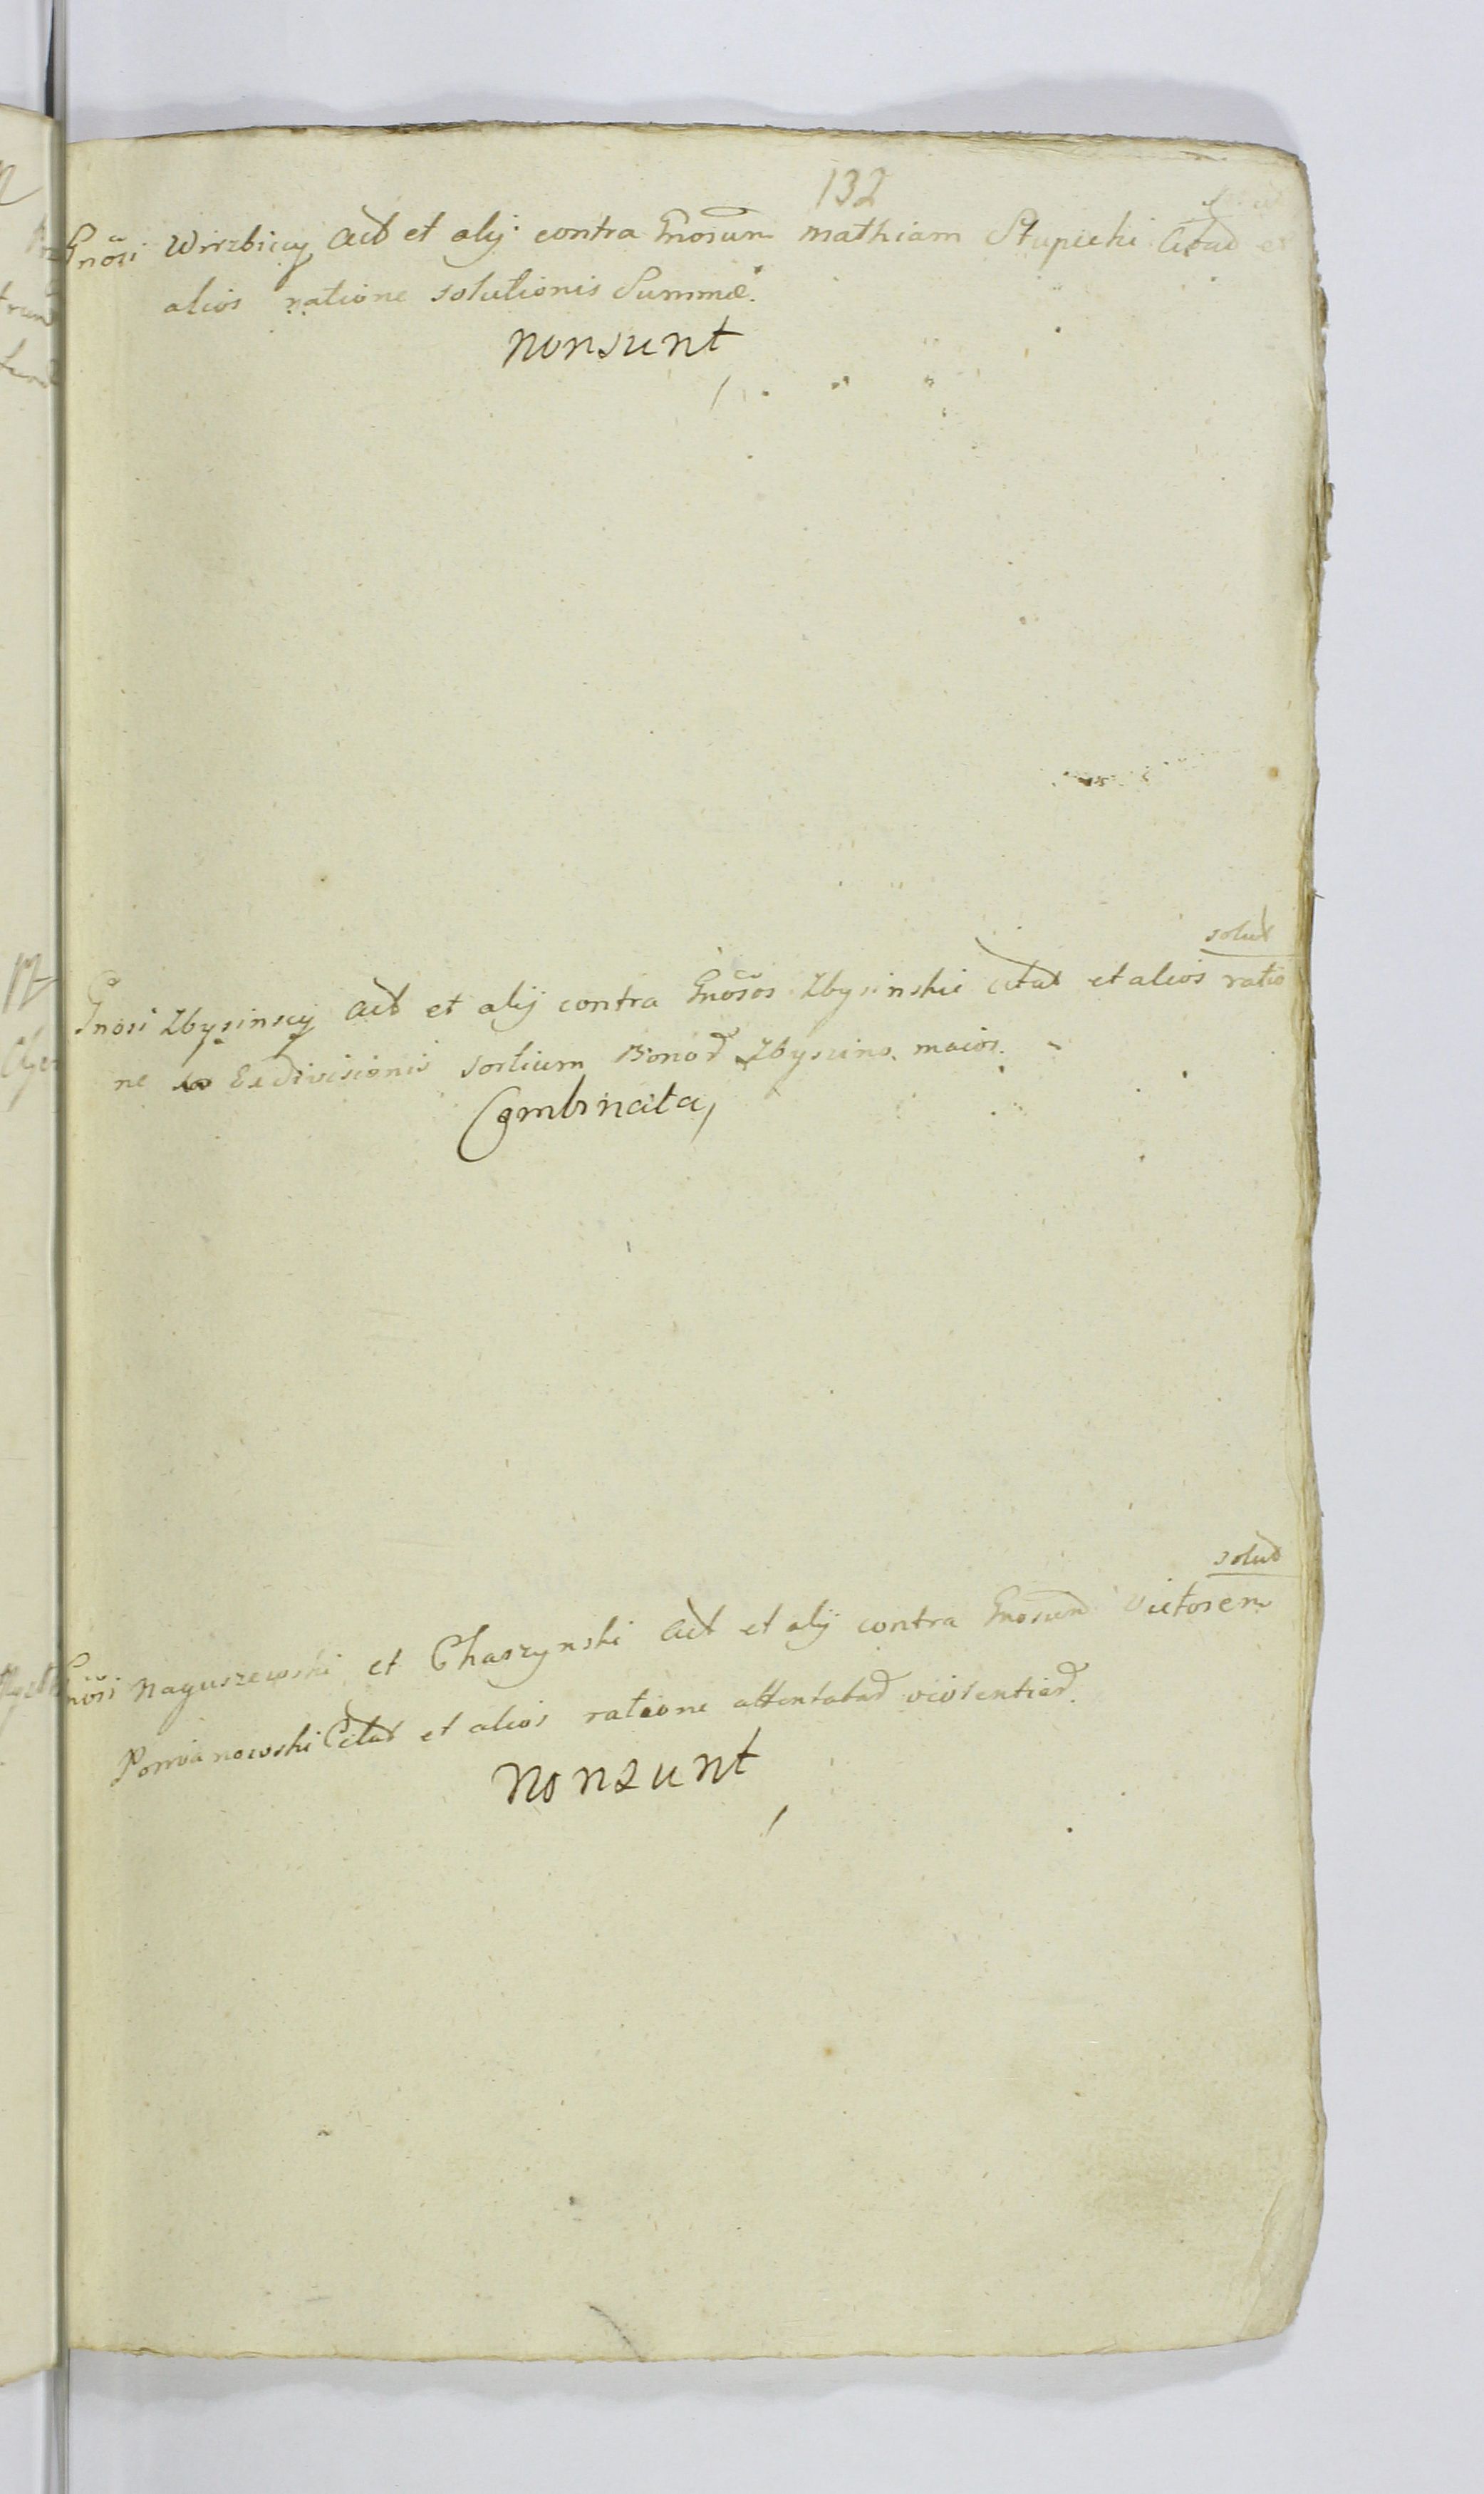 132
Gnōsi Wirzbiccy Act et alij contra Gnosum Mathiam Stupicki Citat et
alios ratione solutionis Summæ.
Nonsunt
solut
Gnosi Zbysinscy Act et alij contra Gnōsos Zbysinskie Citat et alios ratio
ne Exdivisionis sortium Bonor Zbysino maior.
Combinata,
solut
Gnōsi Naguszewski et Chaszynski Act et alij contra Gnosum Victorem
Pomianowski Citat et alios ratione attentatar violentiar.
Nonsunt